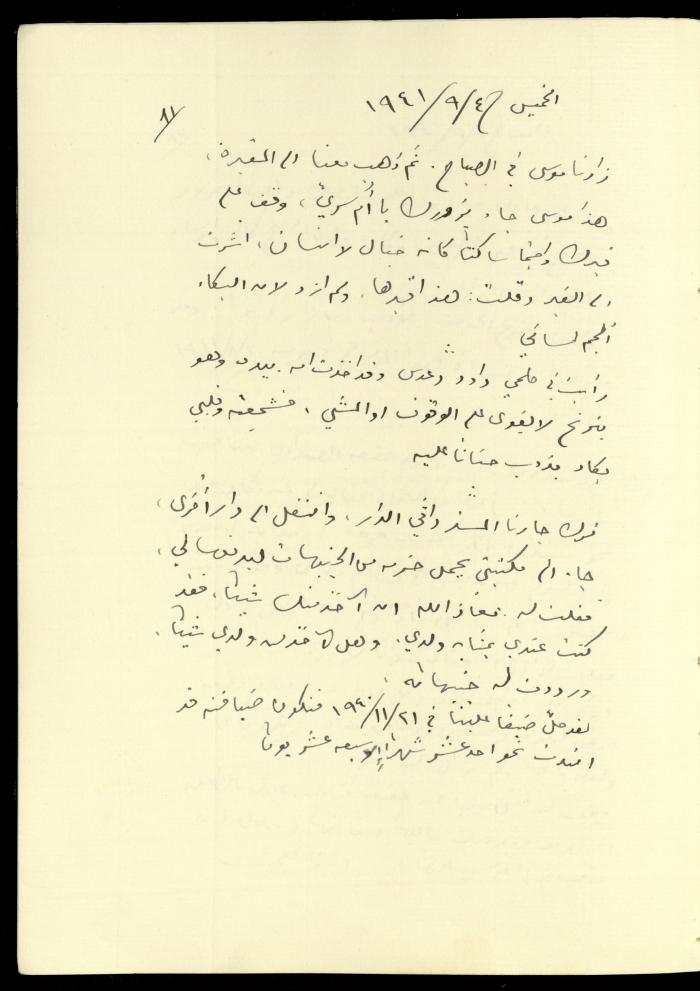 الخميس في ٤/٩/١٩٤١
٨٧
زارنا موسى في الصباح. ثم ذهب معنا الى المقبرة،
هذا موسى جاء يزورك يا أم سري، وقف على
قبرك واجماً ساكتاً كانه خيال لا انسان، اشرت
الى القبر وقلت: هذا قبرها. ولم ازد لان البكاء
ألجم لساني
رأيت في حلمي داود وعدس وقد اخذت امه بيده وهو
يترنح لا يقوى على الوقوف او المشي، فشجعته وقلبي
يكاد يذوب حناناً عليه
ترك جارنا المستر الدار، وانتقل الى دار أخرى،
جاء الى مكتبتي يحمل حزمة من الجنيهات ليدفعها لي،
فقلت له: معاذ الله ان آخذ منك شيئاً، فقد
كنت عندي بمثابة ولدي. وهل آخذ من ولدي شيئاً.
ورددت له جنيهاته،
لقد حلّ ضيفاً علينا في ٢١/١١/١٩٤٠ فتكون ضيافته قد
امتدت نحو احد عشر شهراً الا سبعة عشر يوماً